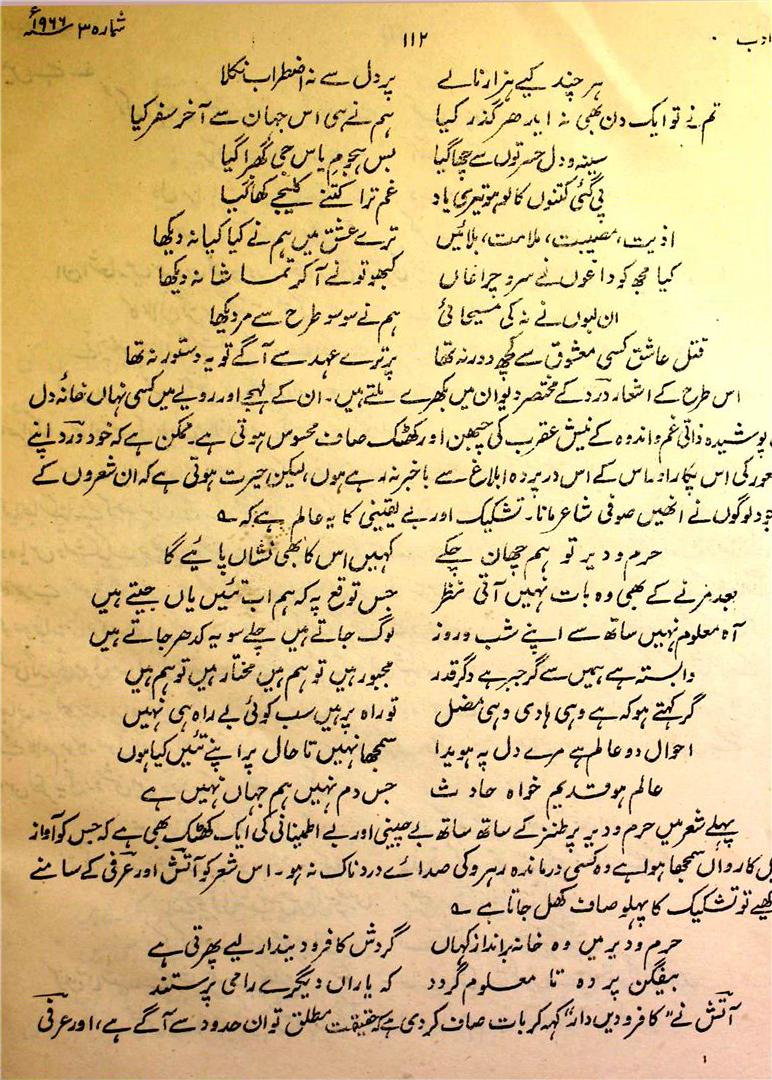 ادب ۱۱۲ شمارہ ۳ ۱۹۶۶ء
ہر چند کیے ہزار نالے پر دل سے نہ اضطراب نکلا
تم نے تو ایک دن بھی نہ ایدھر گذر کیا ہم نے ہی اس جہان سے آخر سفر کیا
سینہ و دل حسرتوں سے چھا گیا بس ہجوم یاس جی گھبرا گیا
پی گئی کتنوں کا لوہو تیری یاد غم ترا کتنے کلیجے کھا گیا
اذیت، مصیبت، ملامت، بلائیں ترے عشق میں ہم نے کیا کیا نہ دیکھا
کیا مجھ کو داغوں نے سرو چراغاں کبھو تو نے آ کر تماشا نہ دیکھا
ان لبوں نے نہ کی مسیحائی ہم نے سو سو طرح سے مر دیکھا
قتل عاشق کسی معشوق سے کچھ دور نہ تھا پر ترے عہد سے آگے تو یہ دستور نہ تھا
اس طرح کے اشعار درد کے مختصر دیوان میں بکھرے ملتے ہیں۔ ان کے لہجے اور رویے میں کسی نہاں خانۂ دل
پوشیدہ ذاتی غم و اندوہ کے نیش عقرب کی چبھن اور کھٹک صاف محسوس ہوتی ہے۔ ممکن ہے کہ خود درد اپنے
کی اس پکار اور اس کے اس در پردہ ابلاغ سے باخبر نہ رہے ہوں، لیکن حیرت ہوتی ہے کہ ان شعروں کے
لوگوں نے انھیں صوفی شاعر مانا۔ تشکیک اور بے یقینی کا یہ عالم ہے کہ ؎
حرم و دیر تو ہم چھان چکے کہیں اس کا بھی نشاں پائیے گا
بعد مرنے کے بھی وہ بات نہیں آتی نظر جس توقع پہ کہ ہم اب تئیں یاں جیتے ہیں
آہ معلوم نہیں ساتھ سے اپنے شب و روز لوگ جاتے ہیں چلے سو یہ کدھر جاتے ہیں
وابستہ ہے ہمیں سے گر جبر ہے دگر قدر مجبور ہیں تو ہم ہیں مختار ہیں تو ہم ہیں
گر کہتے ہو کہ ہے وہی ہادی وہی مضل تو راہ پر ہیں سب کوئی بے راہ ہی نہیں
احوال دو عالم ہے مرے دل پہ ہویدا سمجھا نہیں تا حال پر اپنے تئیں کیا ہوں
عالم ہو قدیم خواہ حادث جس دم نہیں ہم جہاں نہیں ہے
پہلے شعر میں حرم و دیر پر طنز کے ساتھ ساتھ بے چینی اور بے اطمینانی کی ایک کھٹک بھی ہے کہ جس کو آواز
کارواں سمجھا ہوا ہے وہ کسی درماندہ رہرو کی صدائے دردناک نہ ہو۔ اس شعر کو آتش اور عرفی کے سامنے
تو تشکیک کا پہلو صاف کھل جاتا ہے ؎
حرم و دیر میں وہ خانہ برانداز کہاں گردش کافر و دیندار لیے پھرتی ہے
بیفگن پردہ تا معلوم گردد کہ یاراں دیگرے را می پرستند
آتش نے "کافر و دیں دار" کہہ کر بات صاف کر دی ہے کہ حقیقت مطلق تو ان حدود سے آگے ہے، اور عرفی